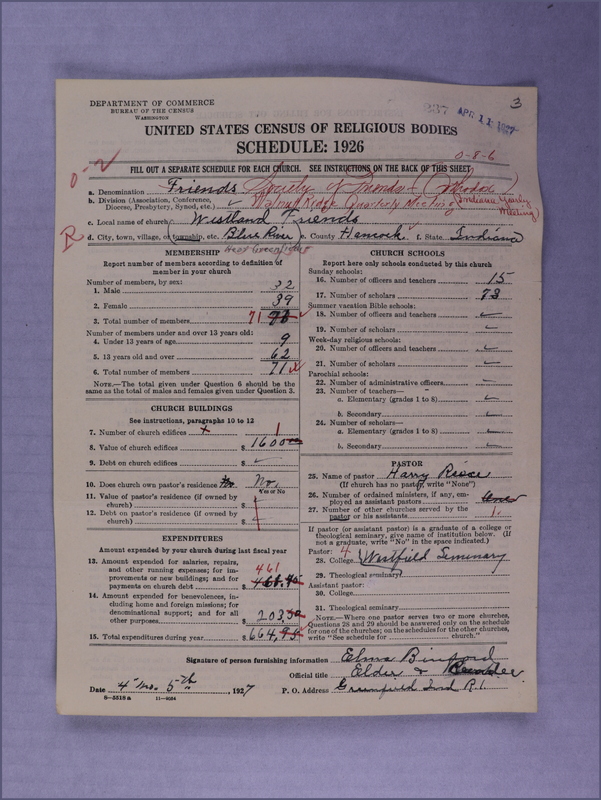 3
DEPARTMENT OF COMMERCE
BUREAU OF THE CENSUS
WASHINGTON
APR 11 1927
UNITED STATES CENSUS OF RELIGIOUS BODIES
SCHEDULE: 1926
0-8-6
FILL OUT A SEPARATE SCHEDULE FOR EACH CHURCH. SEE INSTRUCTIONS ON THE BACK OF THIS SHEET
a. Denomination Friends Society of Friends (Orthodox)
b. Division (Association, Conference, Diocese, Presbytery, Synod, etc.) Walnut Ridge Quarterly Meeting (Indiana Yearly Meeting)
c. Local name of church Westland Friends
d. City, town, village, or township, etc. Blue River e. County Hancock f. State Indiana
Near Greenfield
R
MEMBERSHIP
Report number of members according to definition of member in your church
Number of members, by sex:
1. Male 32
2. Female 39
3. Total number of members 71
Number of members under and over 13 years old:
4. Under 13 years of age 9
5. 13 years old and over 62
6. Total number of members 71
NOTE.—The total given under Question 6 should be the same as the total of males and females given under Question 3.
CHURCH BUILDINGS
See instructions, paragraphs 10 to 12
7. Number of church edifices 1
8. Value of church edifices $ 1600
9. Debt on church edifices $
10. Does church own pastor's residence No.
Yes or No
11. Value of pastor's residence (if owned by church) $
12. Debt on pastor's residence (if owned by church) $
EXPENDITURES
Amount expended by your church during last fiscal year
13. Amount expended for salaries, repairs, and other running expenses; for improvements or new buildings; and for payments on church debt $ 461
14. Amount expended for benevolences, including home and foreign missions; for denominational support; and for all other purposes $ 203.50
15. Total expenditures during year $ 664.95
CHURCH SCHOOLS
Report here only schools conducted by this church
Sunday schools:
16. Number of officers and teachers 15
17. Number of scholars 73
Summer vacation Bible schools:
18. Number of officers and teachers
19. Number of scholars
Week-day religious schools:
20. Number of officers and teachers
21. Number of scholars
Parochial schools:
22. Number of administrative officers
23. Number of teachers—
a. Elementary (grades 1 to 8)
b. Secondary
24. Number of scholars—
a. Elementary (grades 1 to 8)
b. Secondary
PASTOR
25. Name of pastor Harry Reece
(If church has no pastor, write "None")
26. Number of ordained ministers, if any, employed as assistant pastors
27. Number of other churches served by the pastor or his assistants 1.
If pastor (or assistant pastor) is a graduate of a college or theological seminary, give name of institution below. (If not a graduate, write "No" in the space indicated.)
Pastor: 4
28. College Westfield Seminary
29. Theological seminary
Assistant pastor:
30. College
31. Theological seminary
NOTE.—Where one pastor serves two or more churches, Questions 28 and 29 should be answered only on the schedule for one of the churches; on the schedules for the other churches, write "See schedule for church."
Signature of person furnishing information Elma Binford
Official title Elder &
Date 4 mo. 5th, 1927 P. O. Address Greenfield Ind R.1.
8-5518a 11-9064